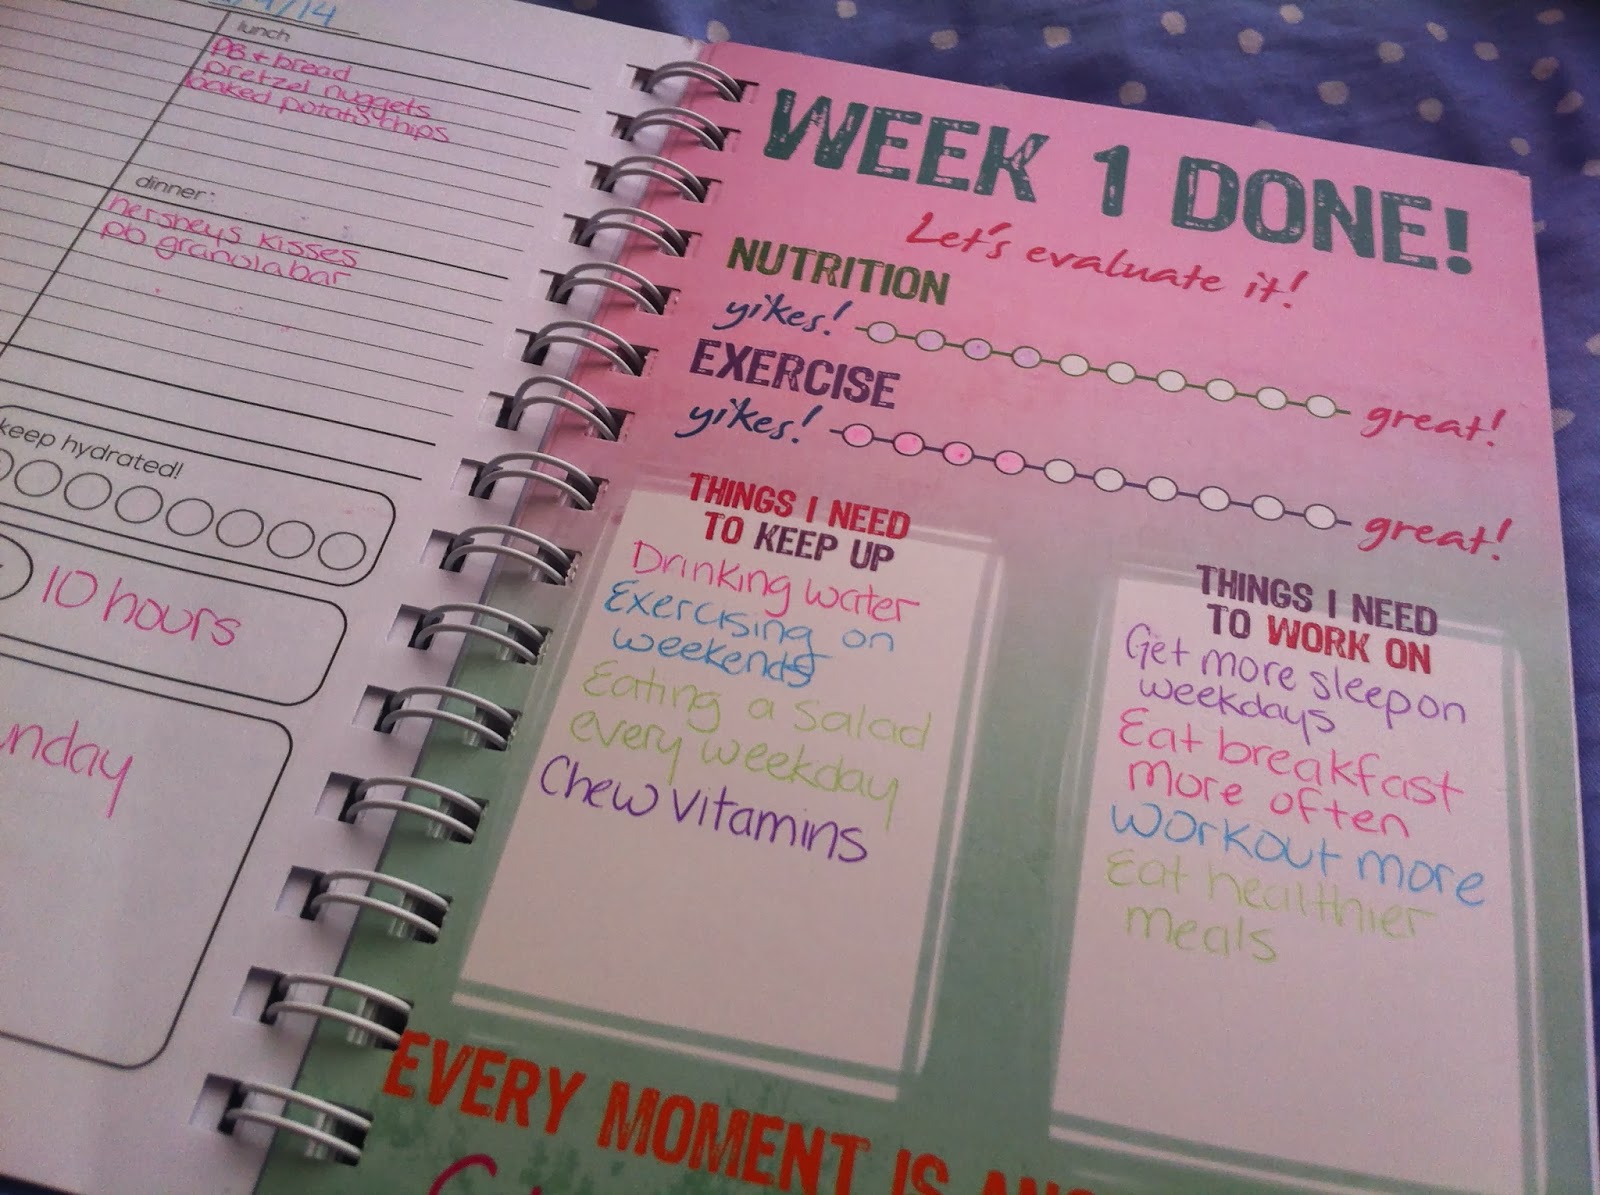 /14
lunch
PB + bread
pretzel nuggets
baked potato chips
dinner:
hersheys kisses
pb granola bar
keep hydrated!
10 hours
WEEK 1 DONE!
Let's evaluate it!
NUTRITION
yikes! great!
EXERCISE
yikes! great!
THINGS I NEED
TO KEEP UP
Drinking water
Exercising on
weekends
Eating a salad
every weekday
Chew Vitamins
THINGS I NEED
TO WORK ON
Get more sleep on
weekdays
Eat breakfast
more often
Workout more
Eat healthier
meals
EVERY MOMENT IS